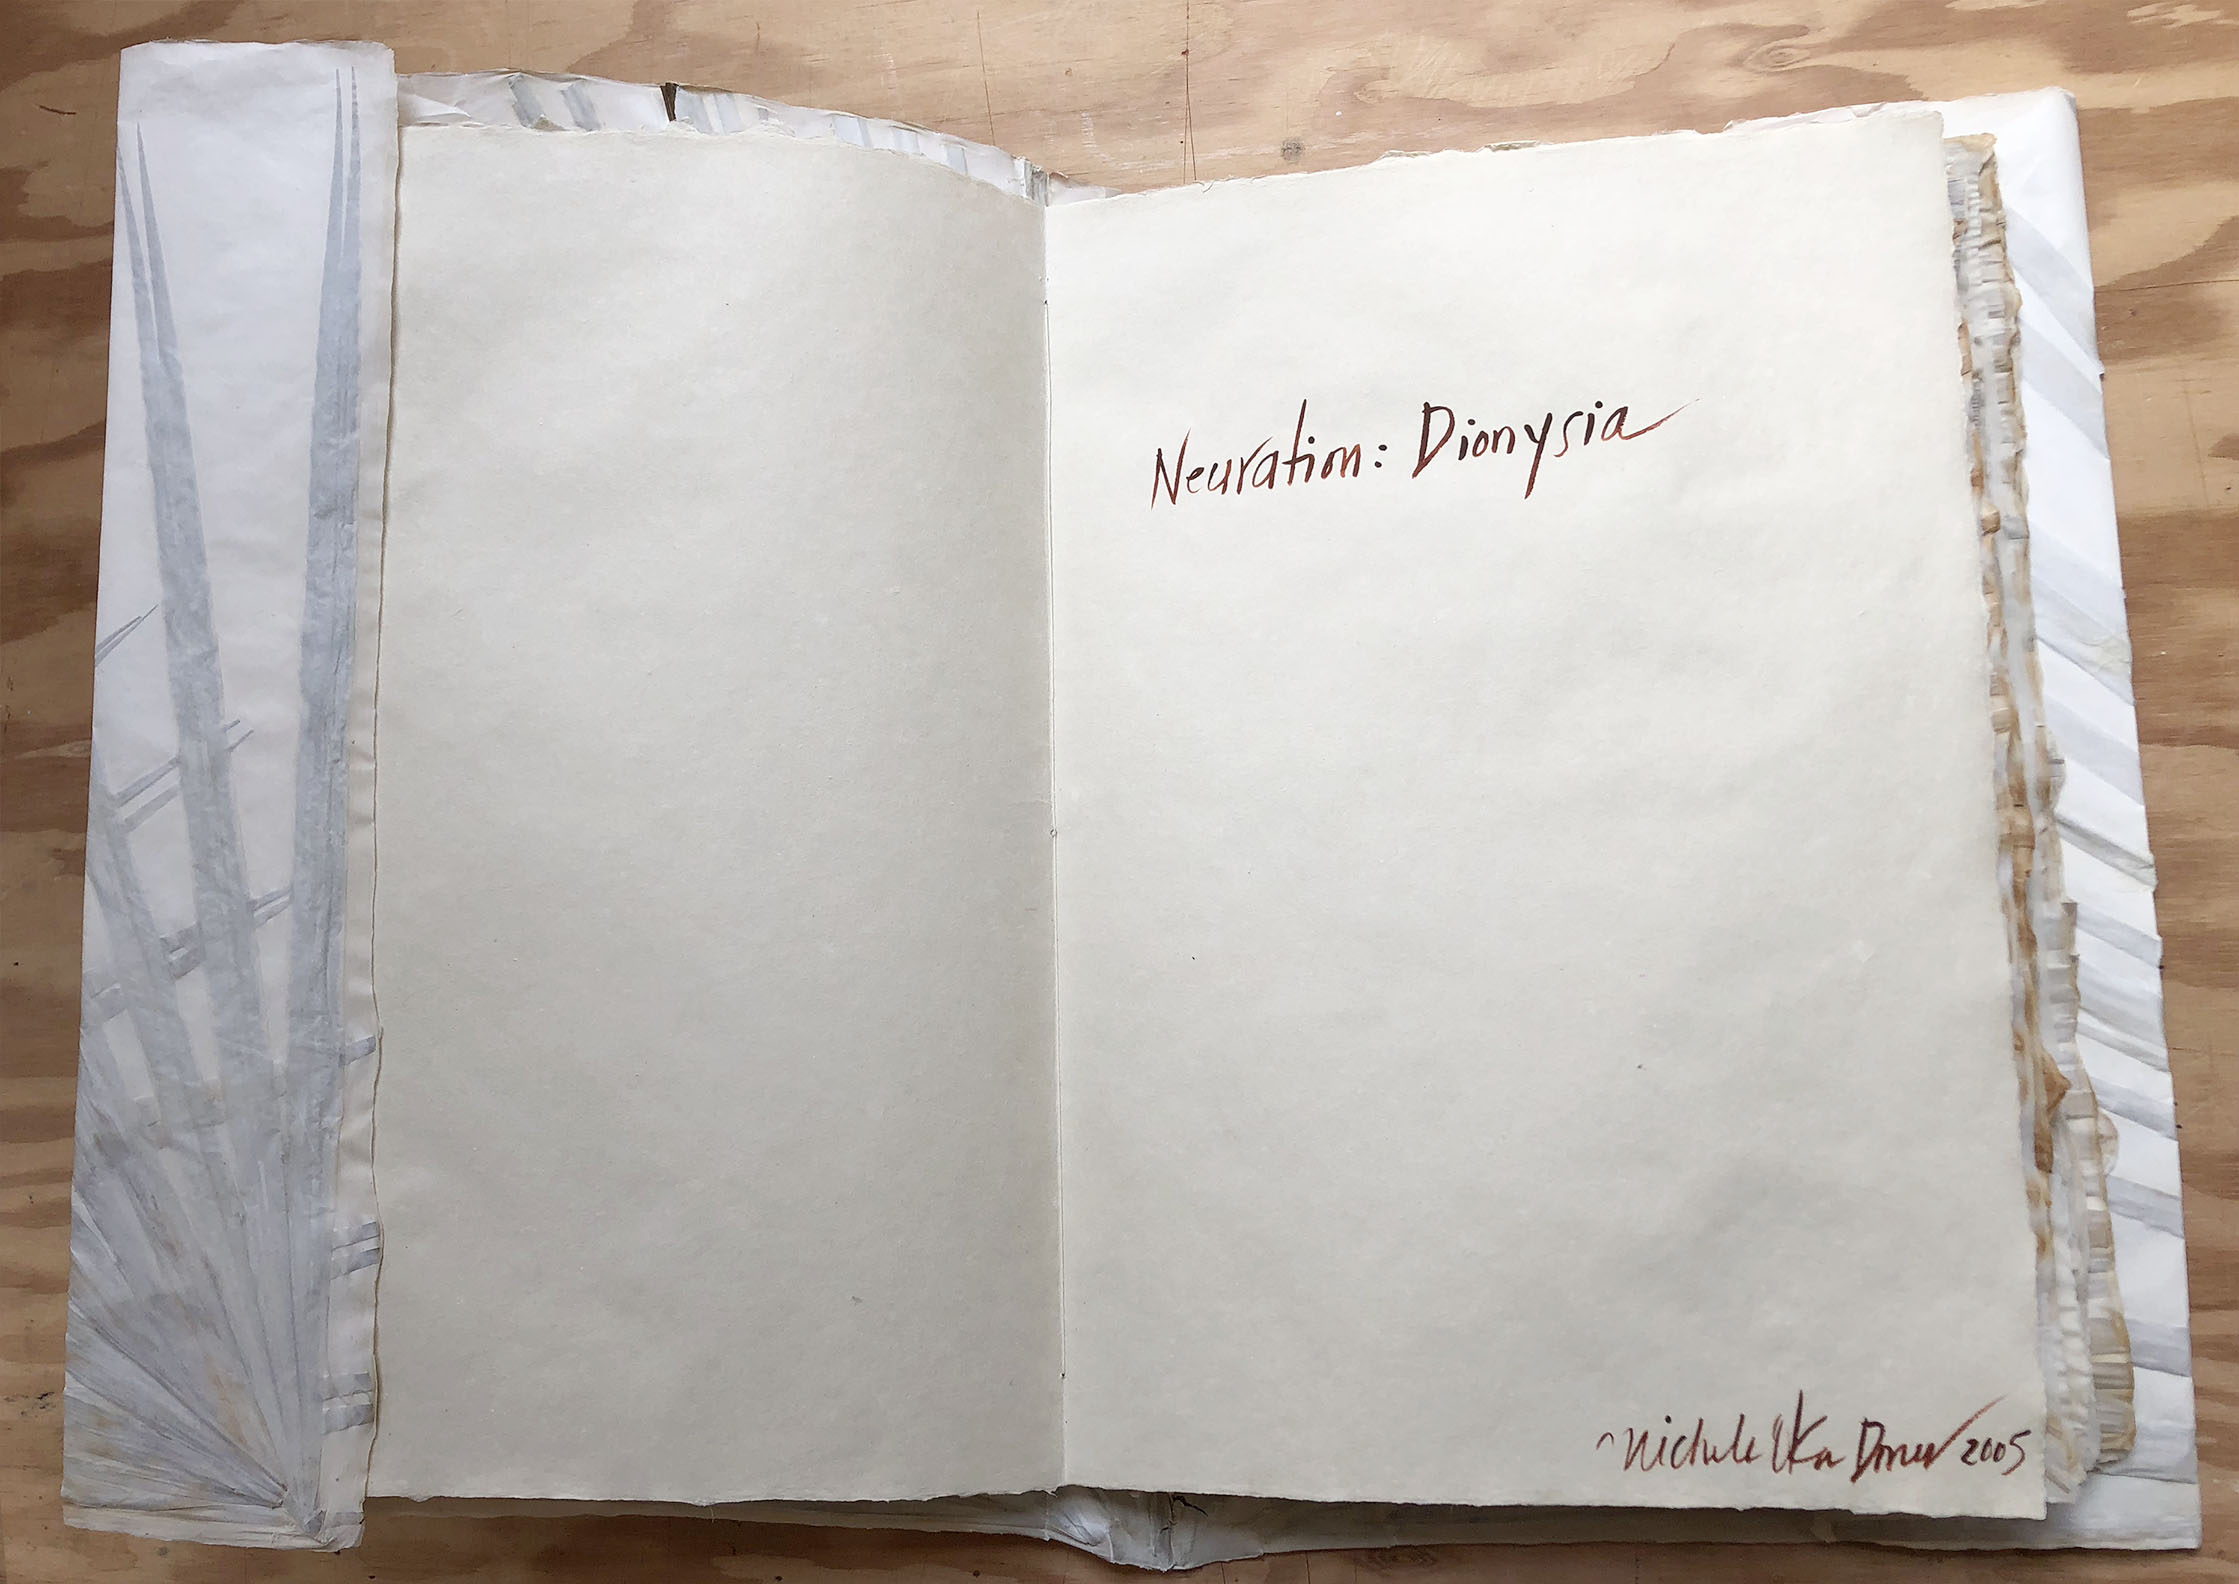 Neuration: Dionysia
Michele Oka Doner 2005